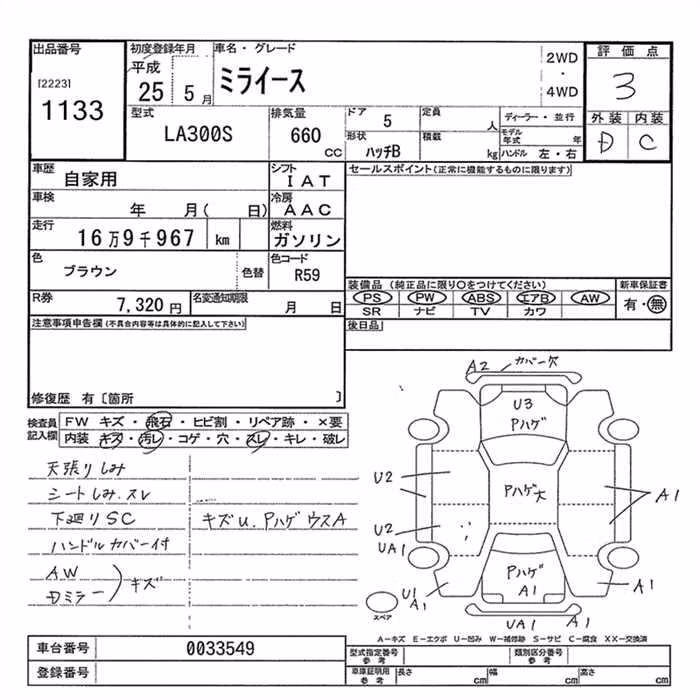 出品番号
[2223]
1133
初度登録年月
平成
25 5 月
車名・グレード
ミライース
2WD
・
4WD
評価点
3
外装 内装
D C
型式
LA300S
排気量
660 CC
ドア 5
形状 ハッチB
定員 人
積載 kg
ディーラー・並行
モデル年式 年
ハンドル 左・右
車歴 自家用
シフト IAT
車検 年 月( 日)
冷房 AAC
走行 16万9千967 km
燃料 ガソリン
色 ブラウン 色替
色コード R59
R券 7,320円
名変通知期限 月 日
セールスポイント(正常に機能するものに限ります)
装備品(純正品に限り○をつけてください)
PS PW ABS エアB AW
SR ナビ TV カワ
新車保証書
有・無
後日品
注意事項申告欄(不具合内容等は具体的に記入して下さい)
修復歴 有〔箇所 〕
検査員記入欄
FW キズ・飛石・ヒビ割・リペア跡・×要
内装 キズ・汚レ・コゲ・穴・スレ・キレ・破レ
天張りしみ
シートしみ.スレ
下廻りSC
キズU.Pハゲ ウスA
ハンドルカバー付
AW
Dミラー
キズ
A2 カバー欠
U3
Pハゲ
U2
Pハゲ大
A1
U2
UA1
Pハゲ
A1
U1
A1
A1
UA1 A1
スペア
A−キズ E−エクボ U−凹み W−補修跡 S−サビ C−腐食 XX−交換済
車台番号 0033549
登録番号
型式指定番号 参考
類別区分番号 参考
車庫証明用 参考
長さ cm 幅 cm 高さ cm